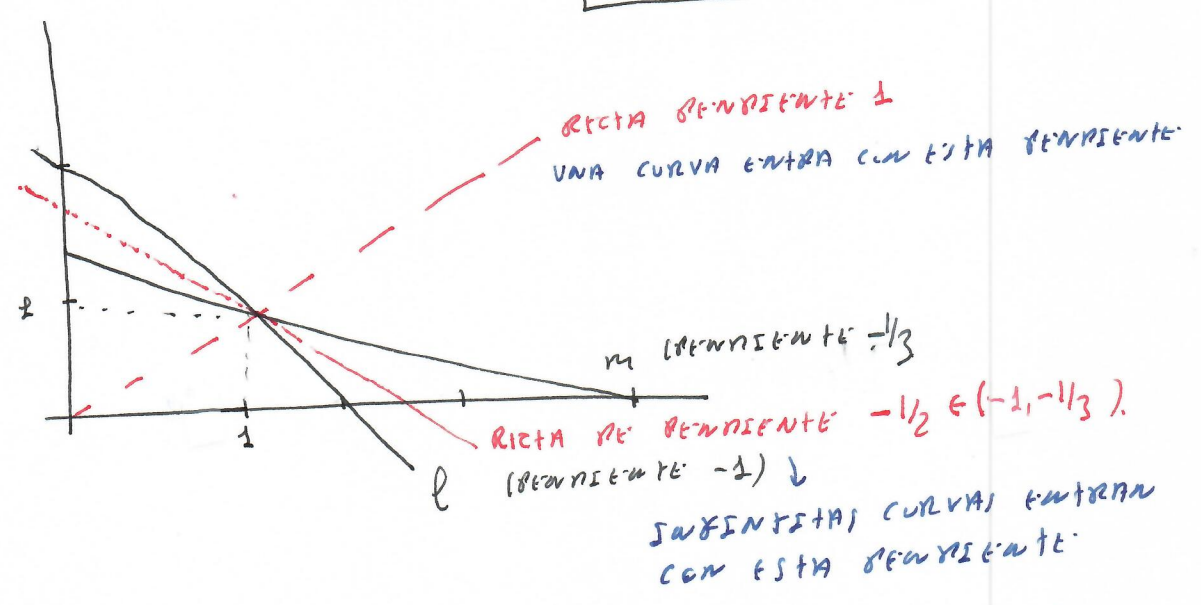 RECTA PENDIENTE 1
UNA CURVA ENTRA CON ESTA PENDIENTE
1
m (PENDIENTE -1/3
1
RECTA DE PENDIENTE -1/2 ∈ (-1, -1/3).
l (PENDIENTE -1) ↓
INFINITAS CURVAS ENTRAN
CON ESTA PENDIENTE